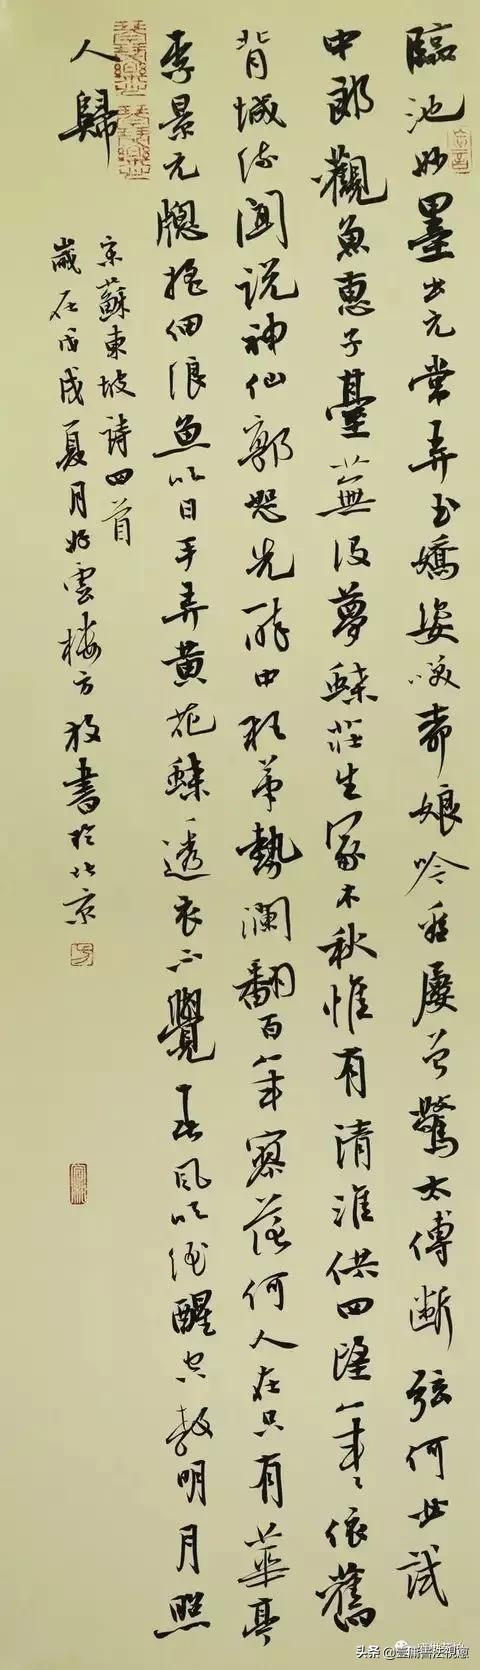 臨池妙墨出元常弄玉嬌姿咲柳娘吟雪屢曾驚太傅斷弦何必試
中郎觀魚惠子臺蕪沒夢蝶莊生冢木秋惟有清淮供四望年年依舊
背城流聞說神仙郭恕先醉中狂筆勢瀾翻百年寥落何人在只有華亭
李景元牕搖細浪魚吹日手弄黃花蝶透衣不覺春風吹酒醒空教明月照
人歸
录蘇東坡詩四首
歲在戊戌夏月好雲樓方放書於北京
头条